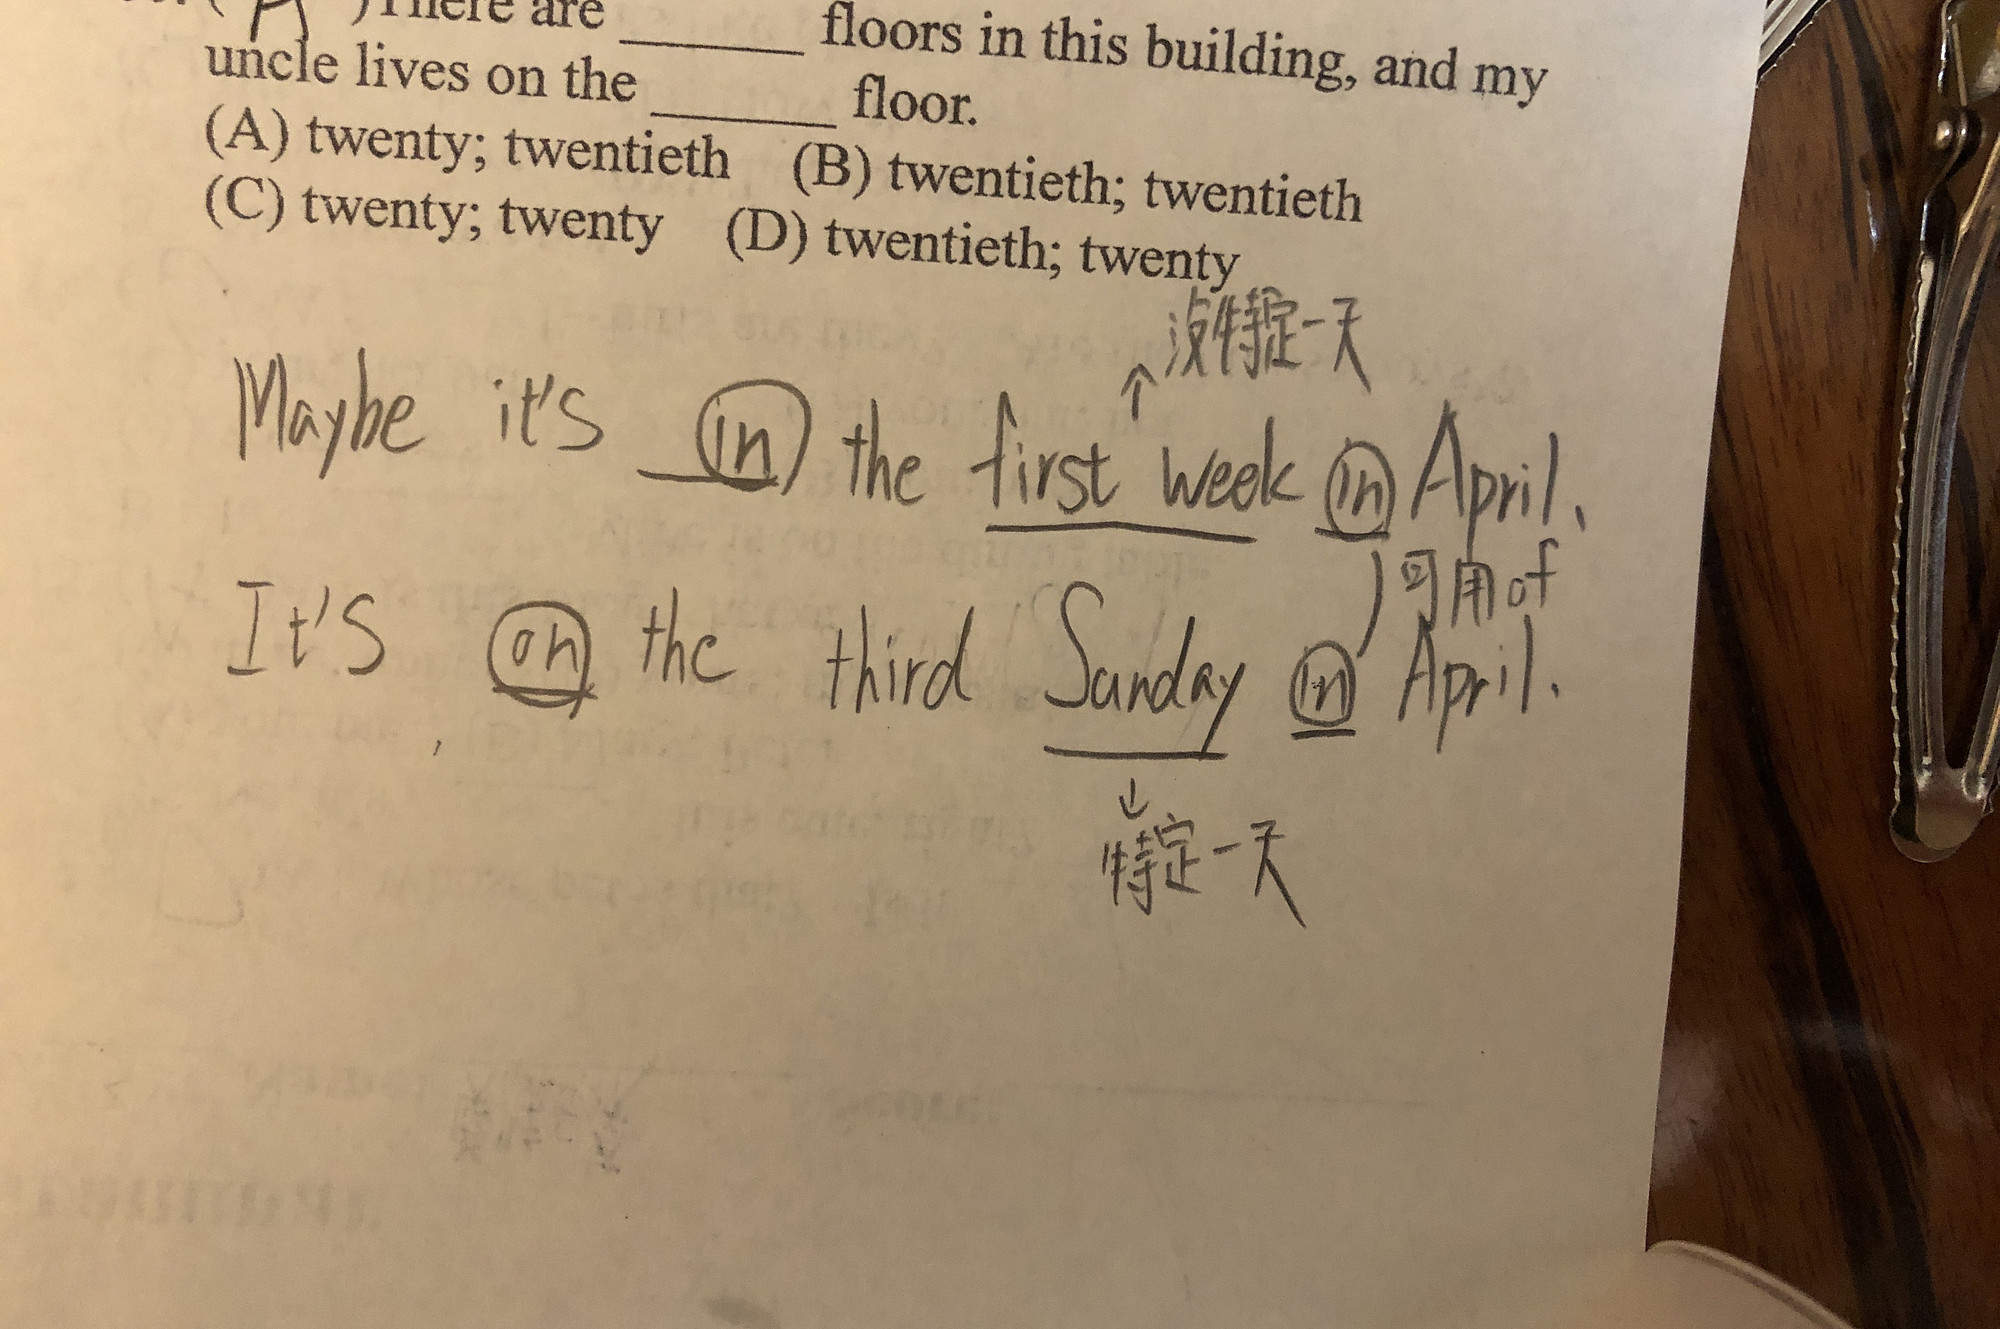 ( A )There are ______ floors in this building, and my
uncle lives on the ______ floor.
(A) twenty; twentieth (B) twentieth; twentieth
(C) twenty; twenty (D) twentieth; twenty
↑ 沒特定一天
Maybe it's in the first week in April.
可用of
It's on the third Sunday in April.
↓
特定一天